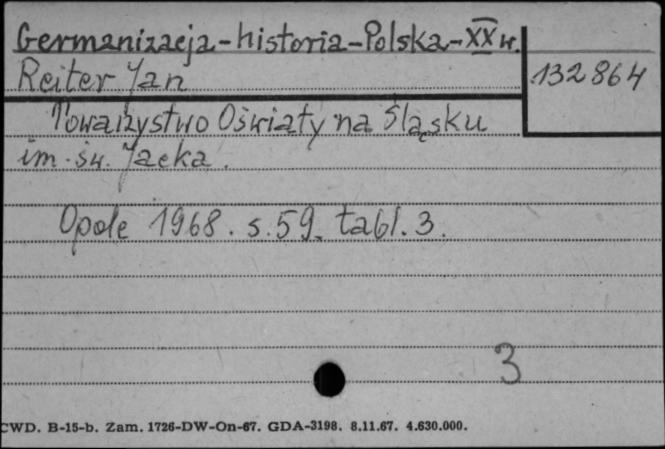 Germanizacja - historia - Polska - XX w.
Reiter Jan
132864
Towarzystwo Oświaty na Śląsku
im. św. Jacka.
Opole 1968. s. 59. tabl. 3.
3
CWD. B-15-b. Zam. 1726-DW-On-67. GDA-3198. 8.11.67. 4.630.000.